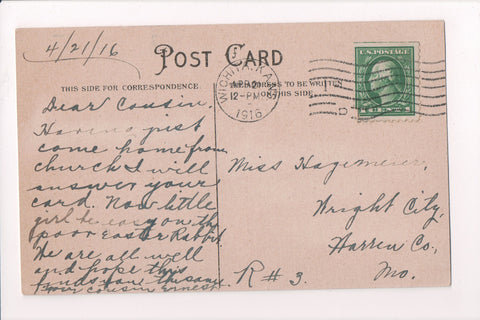 4/21/16
POST CARD
THIS SIDE FOR CORRESPONDENCE.
THE ADDRESS TO BE WRITTEN
THIS SIDE.
WICHITA, KANS.
APR 21
12-PM
1916
U.S. POSTAGE
Dear Cousin,
Having just
come home from
church I will
answer your
card. Now little
girl be easy on the
poor Easter Rabbit.
We are all well
and hope this
finds you the same
your cousin Ernest.
Miss Hagemeier,
Wright City,
Warren Co,
Mo.
R#3.